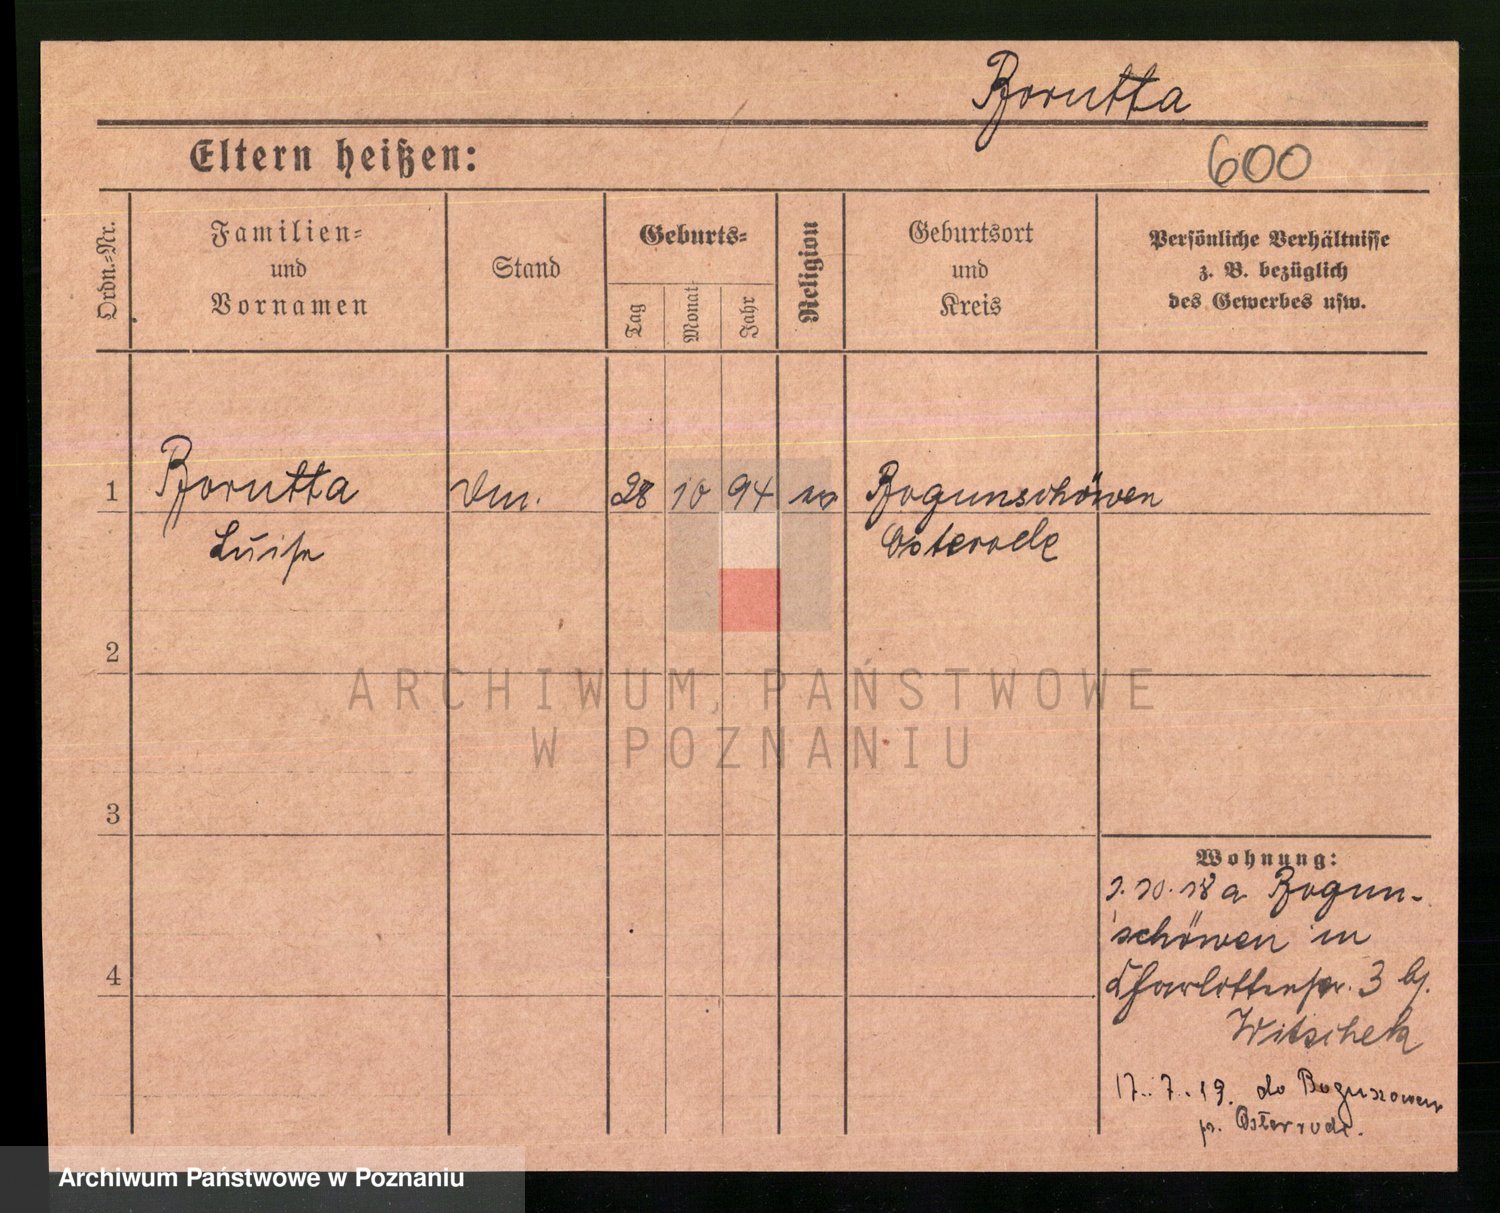 Borutta
Eltern heißen:
600
Ordn.-Nr.
Familien-
und
Vornamen
Stand
Geburts-
Tag
Monat
Jahr
Religion
Geburtsort
und
Kreis
Persönliche Verhältnisse
z. B. bezüglich
des Gewerbes usw.
1 Borutta 28 10 94 Bogunschöwen
Luise Osterode
2
3
4
Wohnung:
1.10.18 a Bogun-
schöwen in
Charlottenstr. 3 bj.
Witschek
17.7.19. do Boguszowen
p. Osterrode.
ARCHIWUM PAŃSTWOWE
W POZNANIU
Archiwum Państwowe w Poznaniu